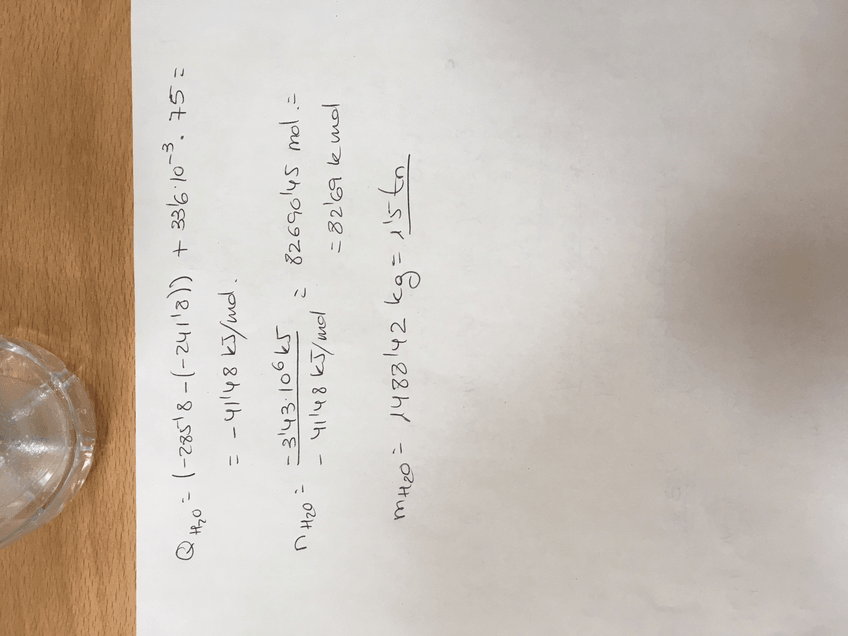 Q H₂O = (-285'8 - (-241'8)) + 33'6·10⁻³ · 75 =
= -41'48 kJ/mol.
n H₂O = -3'43·10⁶ kJ / -41'48 kJ/mol = 82690'45 mol. =
= 82'69 kmol
m H₂O = 1488'42 kg = 1'5 tn